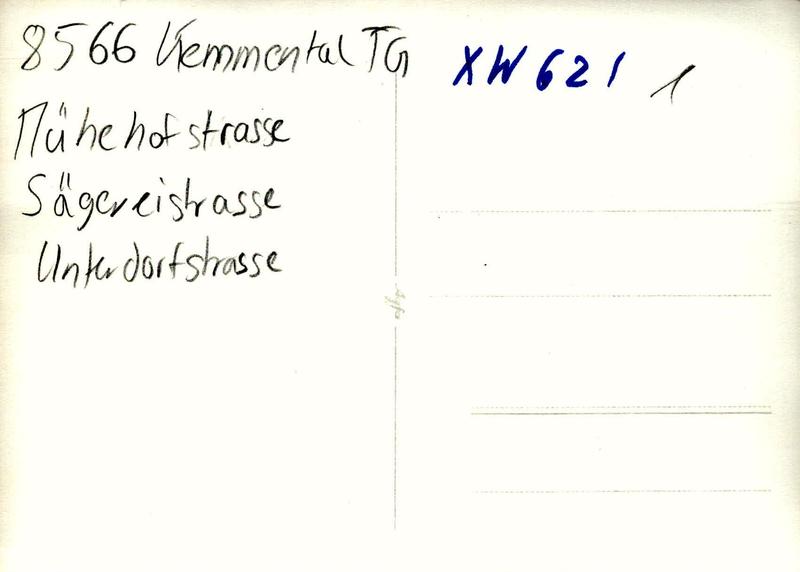 8566 Kemmental TG
Mühehofstrasse
Sägereistrasse
Unterdorfstrasse
XW 621 1